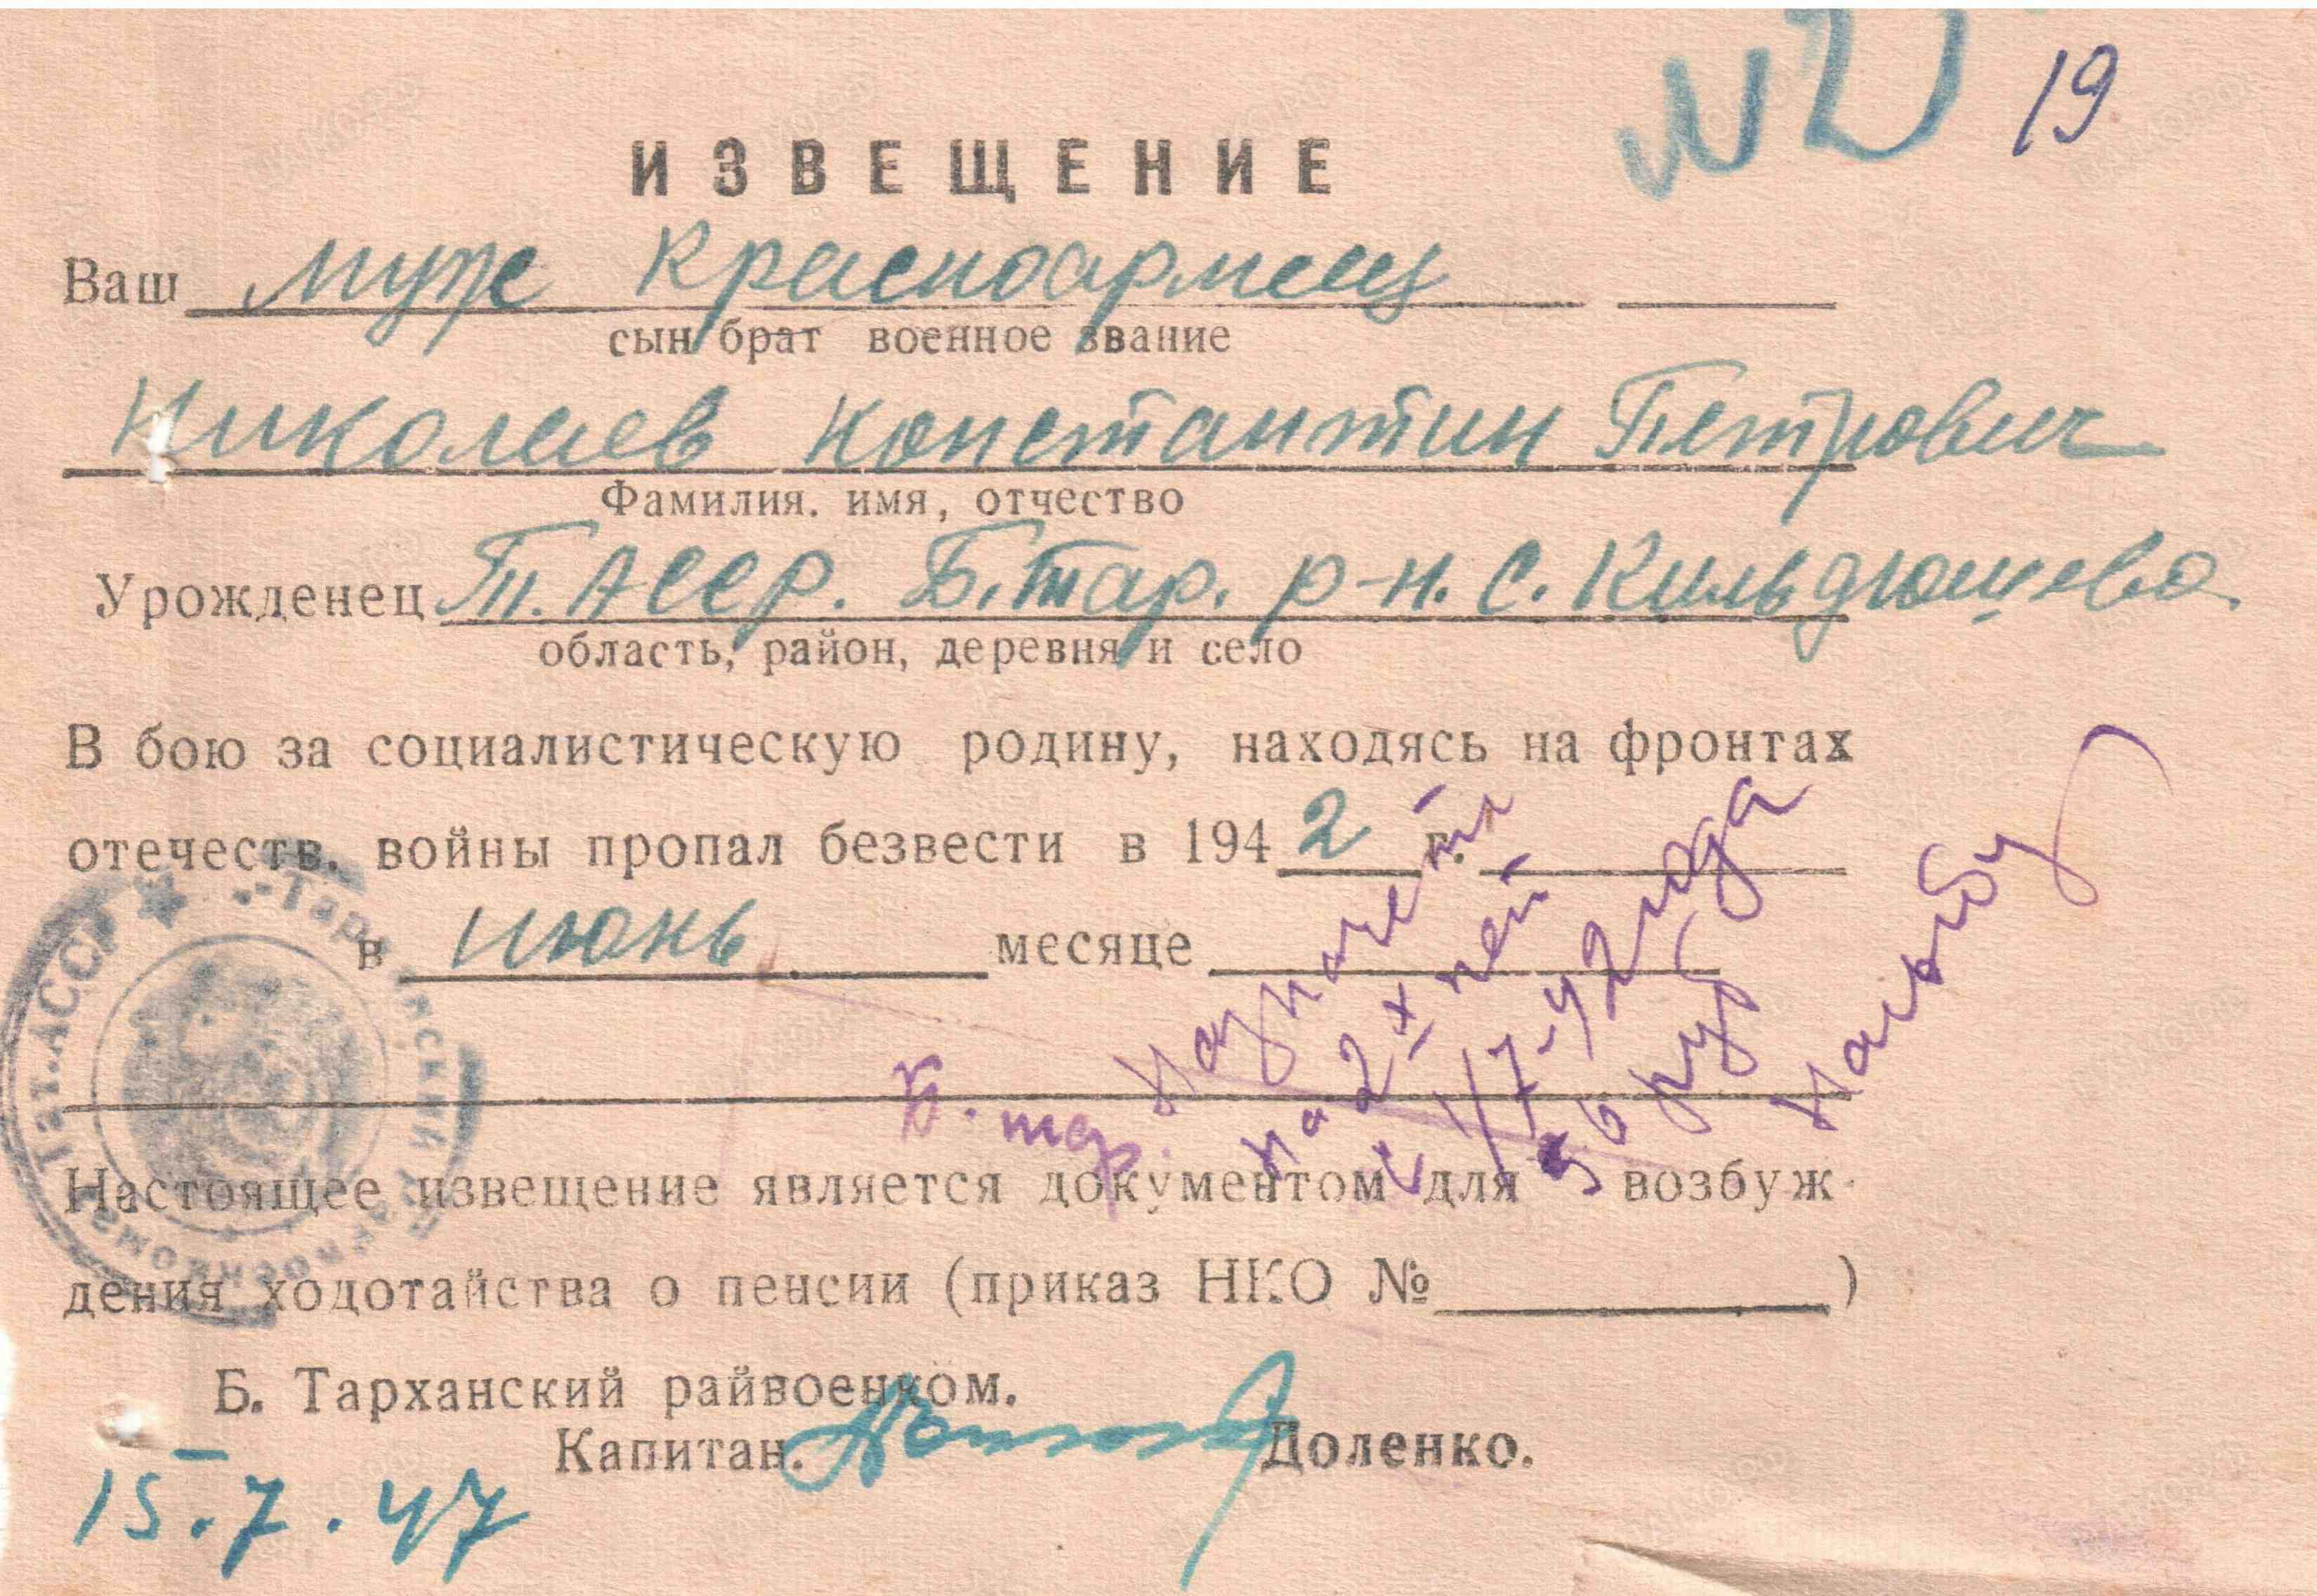 19
ИЗВЕЩЕНИЕ
Ваш муж Красноармеец
сын брат военное звание
Николаев Константин Петрович
Фамилия. имя, отчество
Урожденец Т.АССР. Б.Тар. р-н. С. Кильдюшево.
область, район, деревня и село
В бою за социалистическую родину, находясь на фронтах
отечеств. войны пропал безвести в 1942 г.
в июнь месяце
Назначить
на 2х чел
с 1/7-42 года
56 руб
Б. тар.
Настоящее извещение является документом для возбуж-
дения ходотайства о пенсии (приказ НКО № )
Б. Тарханский райвоенком.
Капитан. Доленко.
15.7.47
Тат.АССР